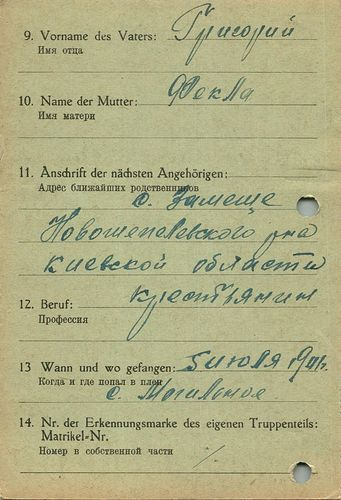 9. Vorname des Vaters: Григорий
Имя отца
10. Name der Mutter: Фекла
Имя матери
11. Anschrift der nächsten Angehörigen:
Адрес ближайших родственников
с. Замоще
Новошепелевского р-на
Киевской области
12. Beruf: крестьянин
Профессия
13 Wann und wo gefangen: 5 июля 1941г.
Когда и где попал в плен
с. Могильное
14. Nr. der Erkennungsmarke des eigenen Truppenteils:
Matrikel-Nr.
Номер в собственной части